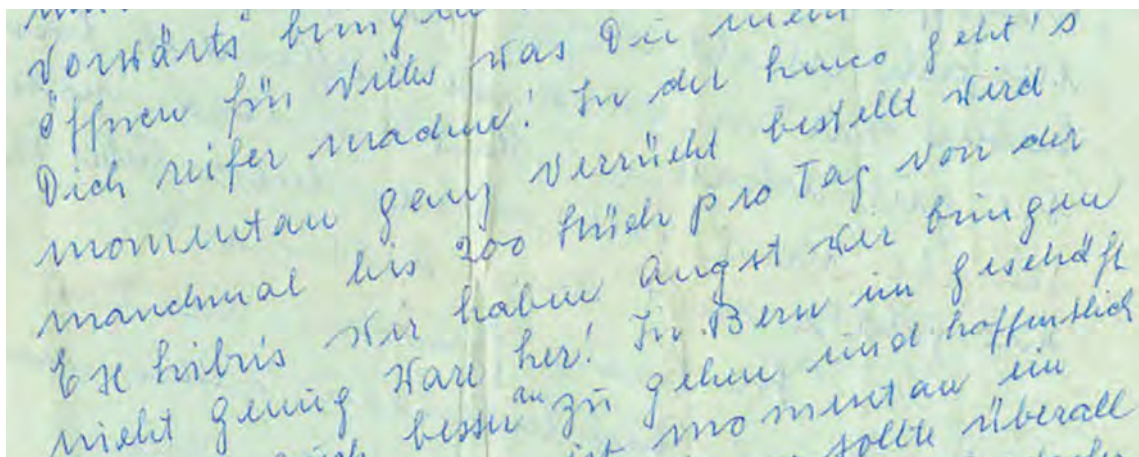 Vorwärts bringen
Öffnen für Vieles was Du nicht
Dich reifer machen! In der geht's
momentan ganz verrückt bestellt wird
manchmal bis 200 Stück pro Tag von der
Exe wir haben Angst wir bringen
nicht genug Ware her! In Bern im Geschäft
besser an zu gehen und hoffentlich
ist momentan ein
sollte überall